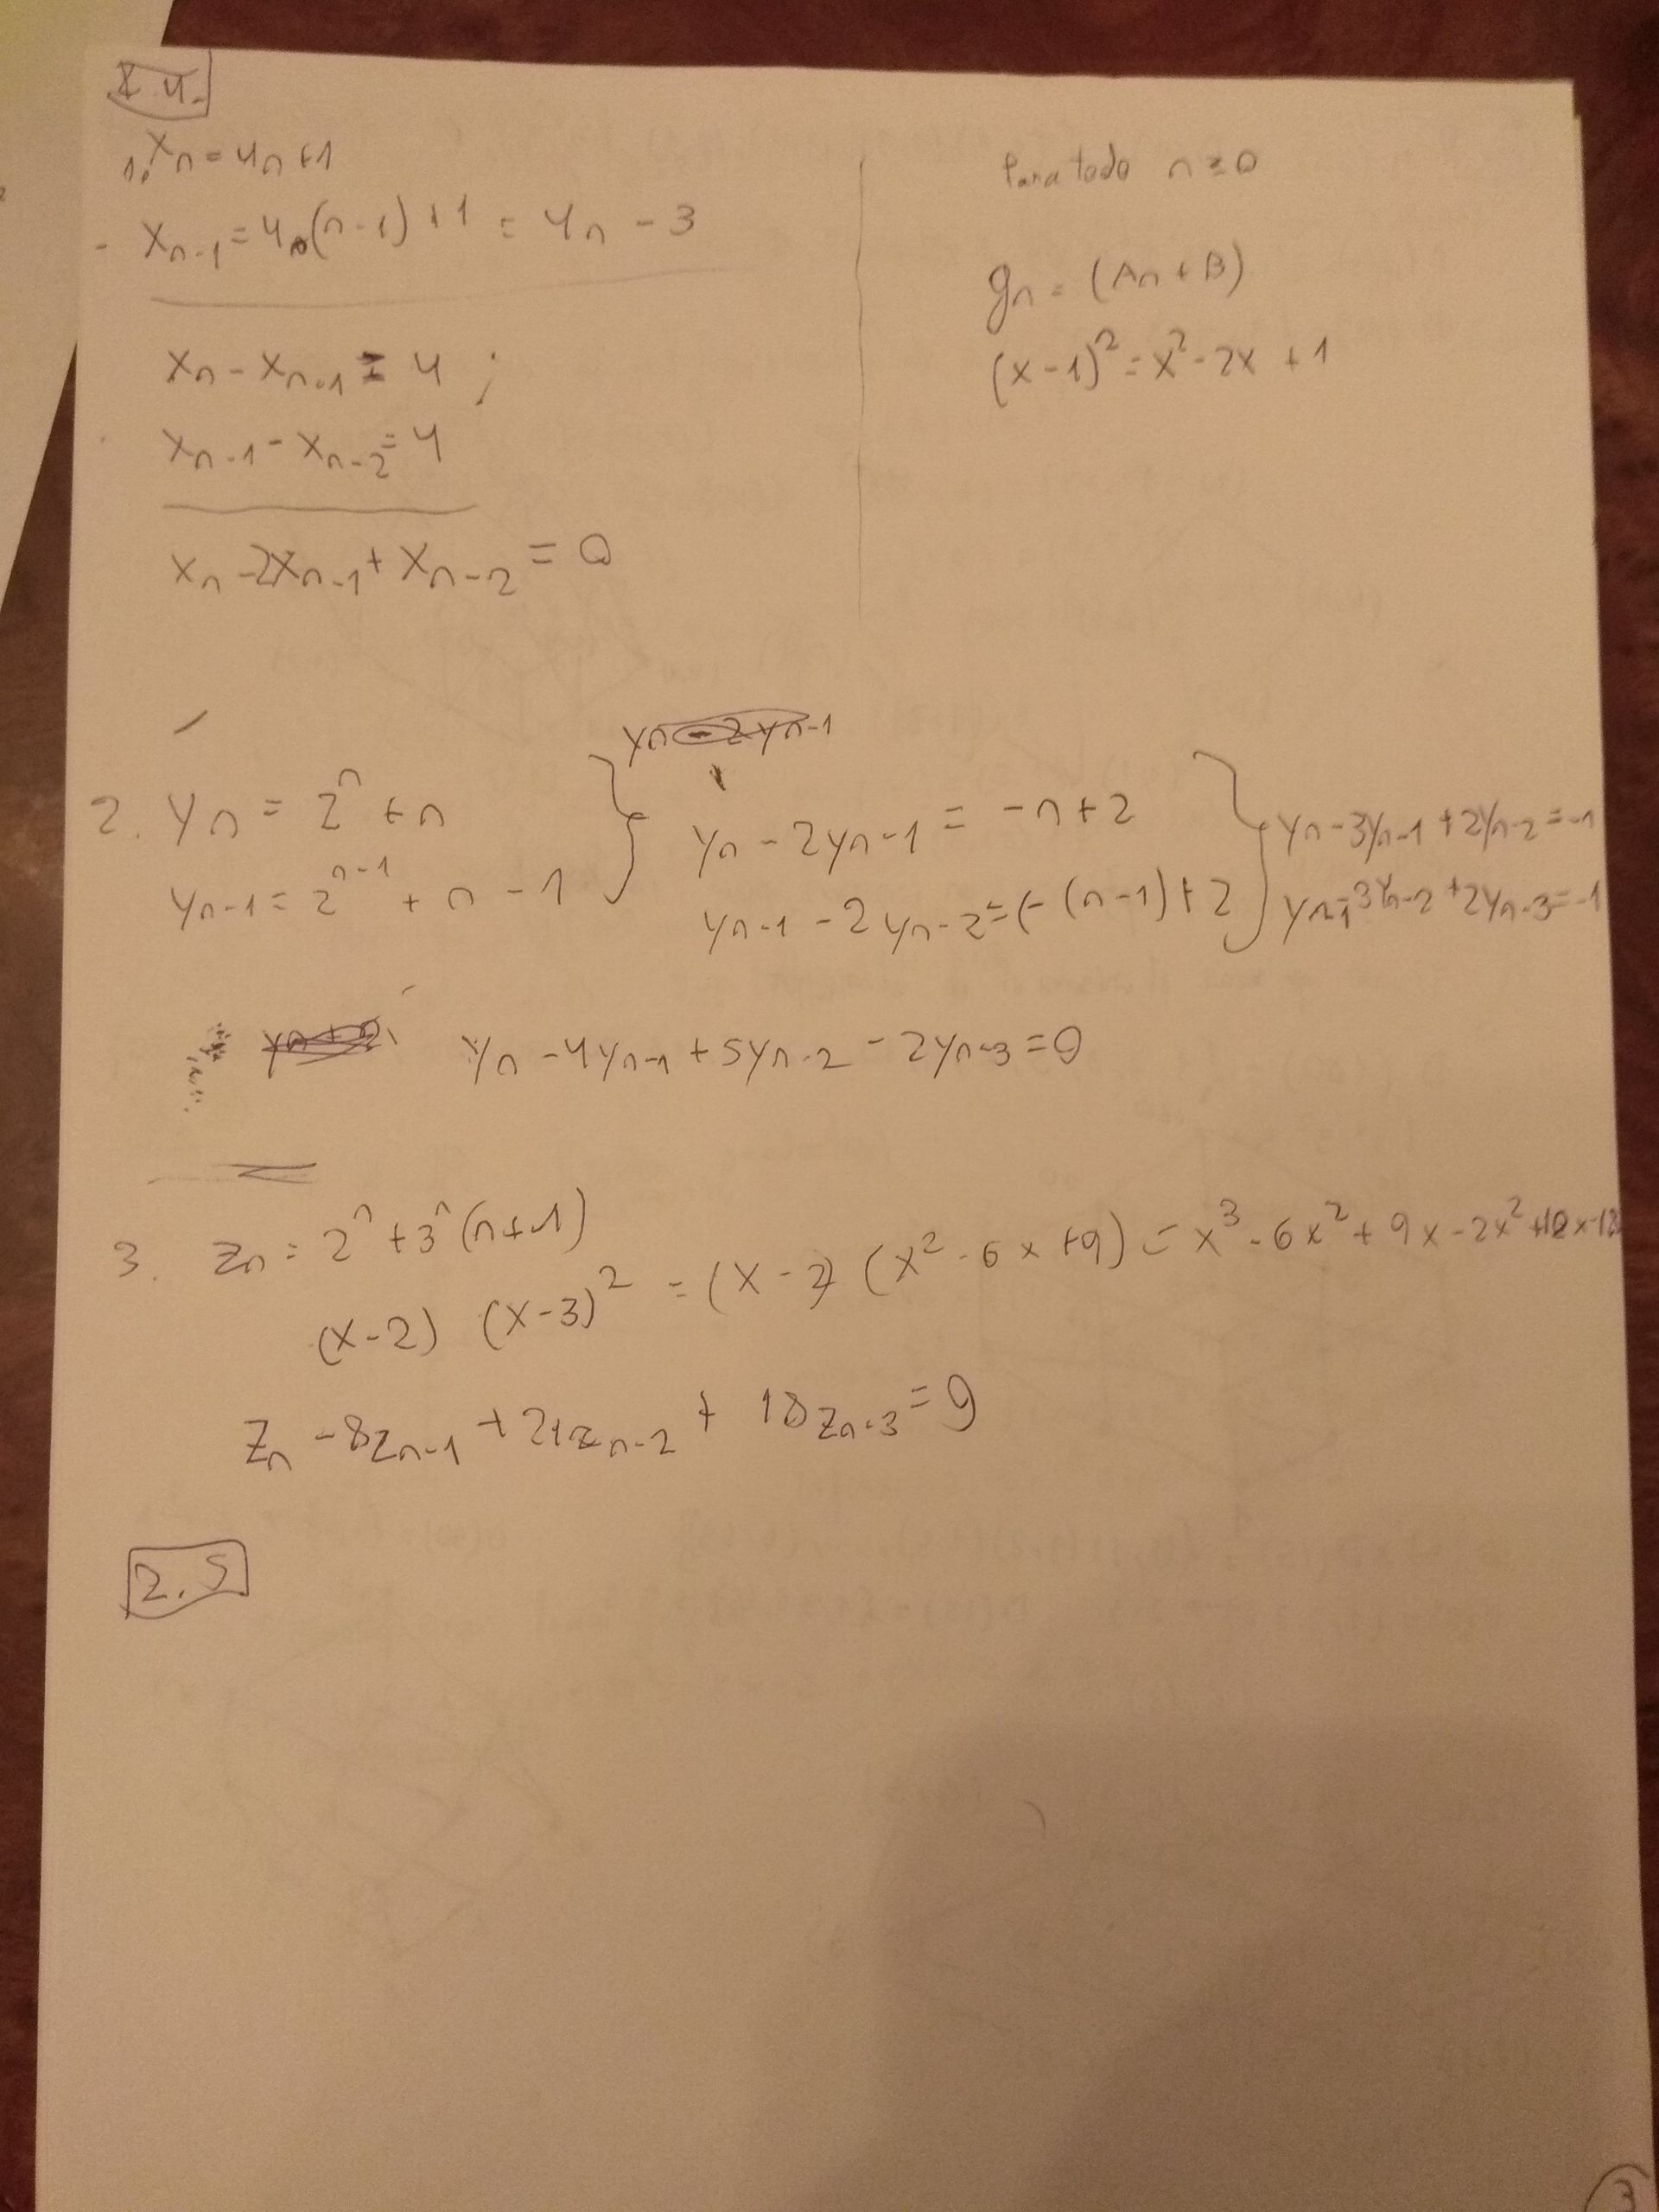 2.4.
1. Xn = 4n+1
- Xn-1 = 4(n-1)+1 = 4n - 3
Xn - Xn-1 = 4 ;
Xn-1 - Xn-2 = 4
Xn - 2Xn-1 + Xn-2 = 0
Para todo n ≥ 0
gn = (An + B)
(x-1)² = x² - 2x + 1
yn - 2yn-1
2. yn = 2ⁿ + n
yn-1 = 2ⁿ⁻¹ + n - 1
yn - 2yn-1 = -n+2
yn-1 - 2yn-2 = (-(n-1)+2
yn - 3yn-1 + 2yn-2 = -1
yn-1 - 3yn-2 + 2yn-3 = -1
yn - 4yn-1 + 5yn-2 - 2yn-3 = 0
3. zn = 2ⁿ + 3ⁿ(n+1)
(x-2) (x-3)² = (x-2) (x² - 6x + 9) = x³ - 6x² + 9x - 2x² + 12x - 18
zn - 8zn-1 + 21zn-2 + 18zn-3 = 0
2.5
3